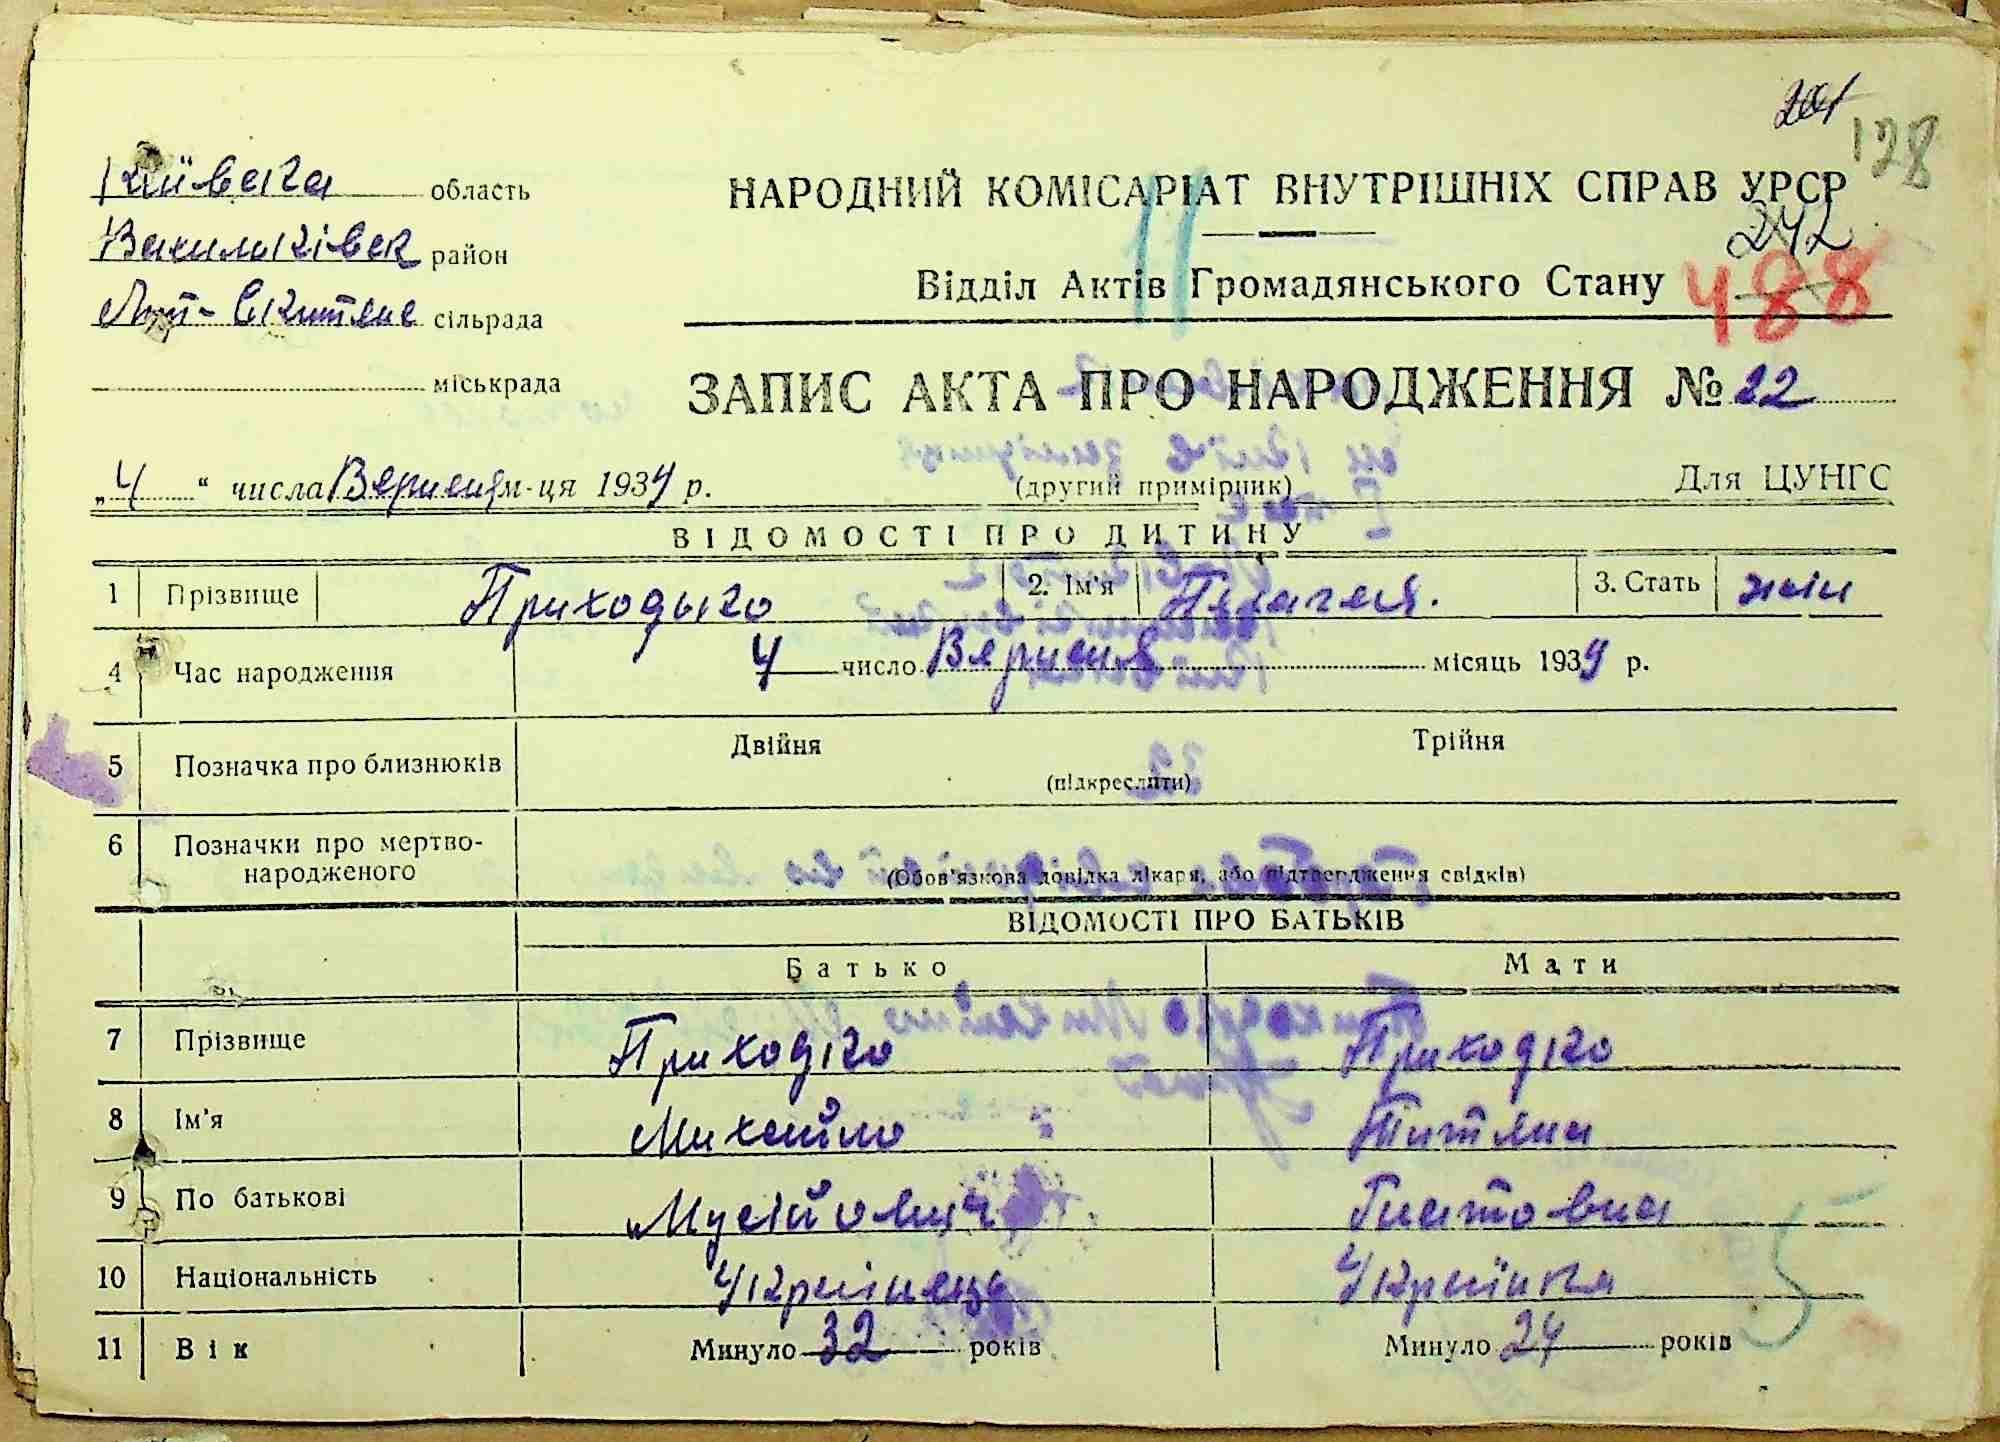 201
128
Київська область
НАРОДНИЙ КОМІСАРІАТ ВНУТРІШНІХ СПРАВ УРСР
242
Васильківськ район
Відділ Актів Громадянського Стану 488
сільрада
міськрада
ЗАПИС АКТА ПРО НАРОДЖЕННЯ № 22
„4“ числа Вересня м-ця 1934 р.
(другий примірник)
Для ЦУНГС
ВІДОМОСТІ ПРО ДИТИНУ
1 Прізвище Приходько 2. Ім'я Пелагея. 3. Стать жін
4 Час народження 4 число Вересня місяць 1934 р.
5 Позначка про близнюків Двійня Трійня
(підкреслити)
6 Позначки про мертво-
народженого
(Обов'язкова довідка лікаря, або підтвердження свідків)
ВІДОМОСТІ ПРО БАТЬКІВ
Батько Мати
7 Прізвище Приходько Приходько
8 Ім'я Михайло Титяна
9 По батькові Мусійович Гнатовна
10 Національність Українець Українка
11 Вік Минуло 32 років Минуло 24 років